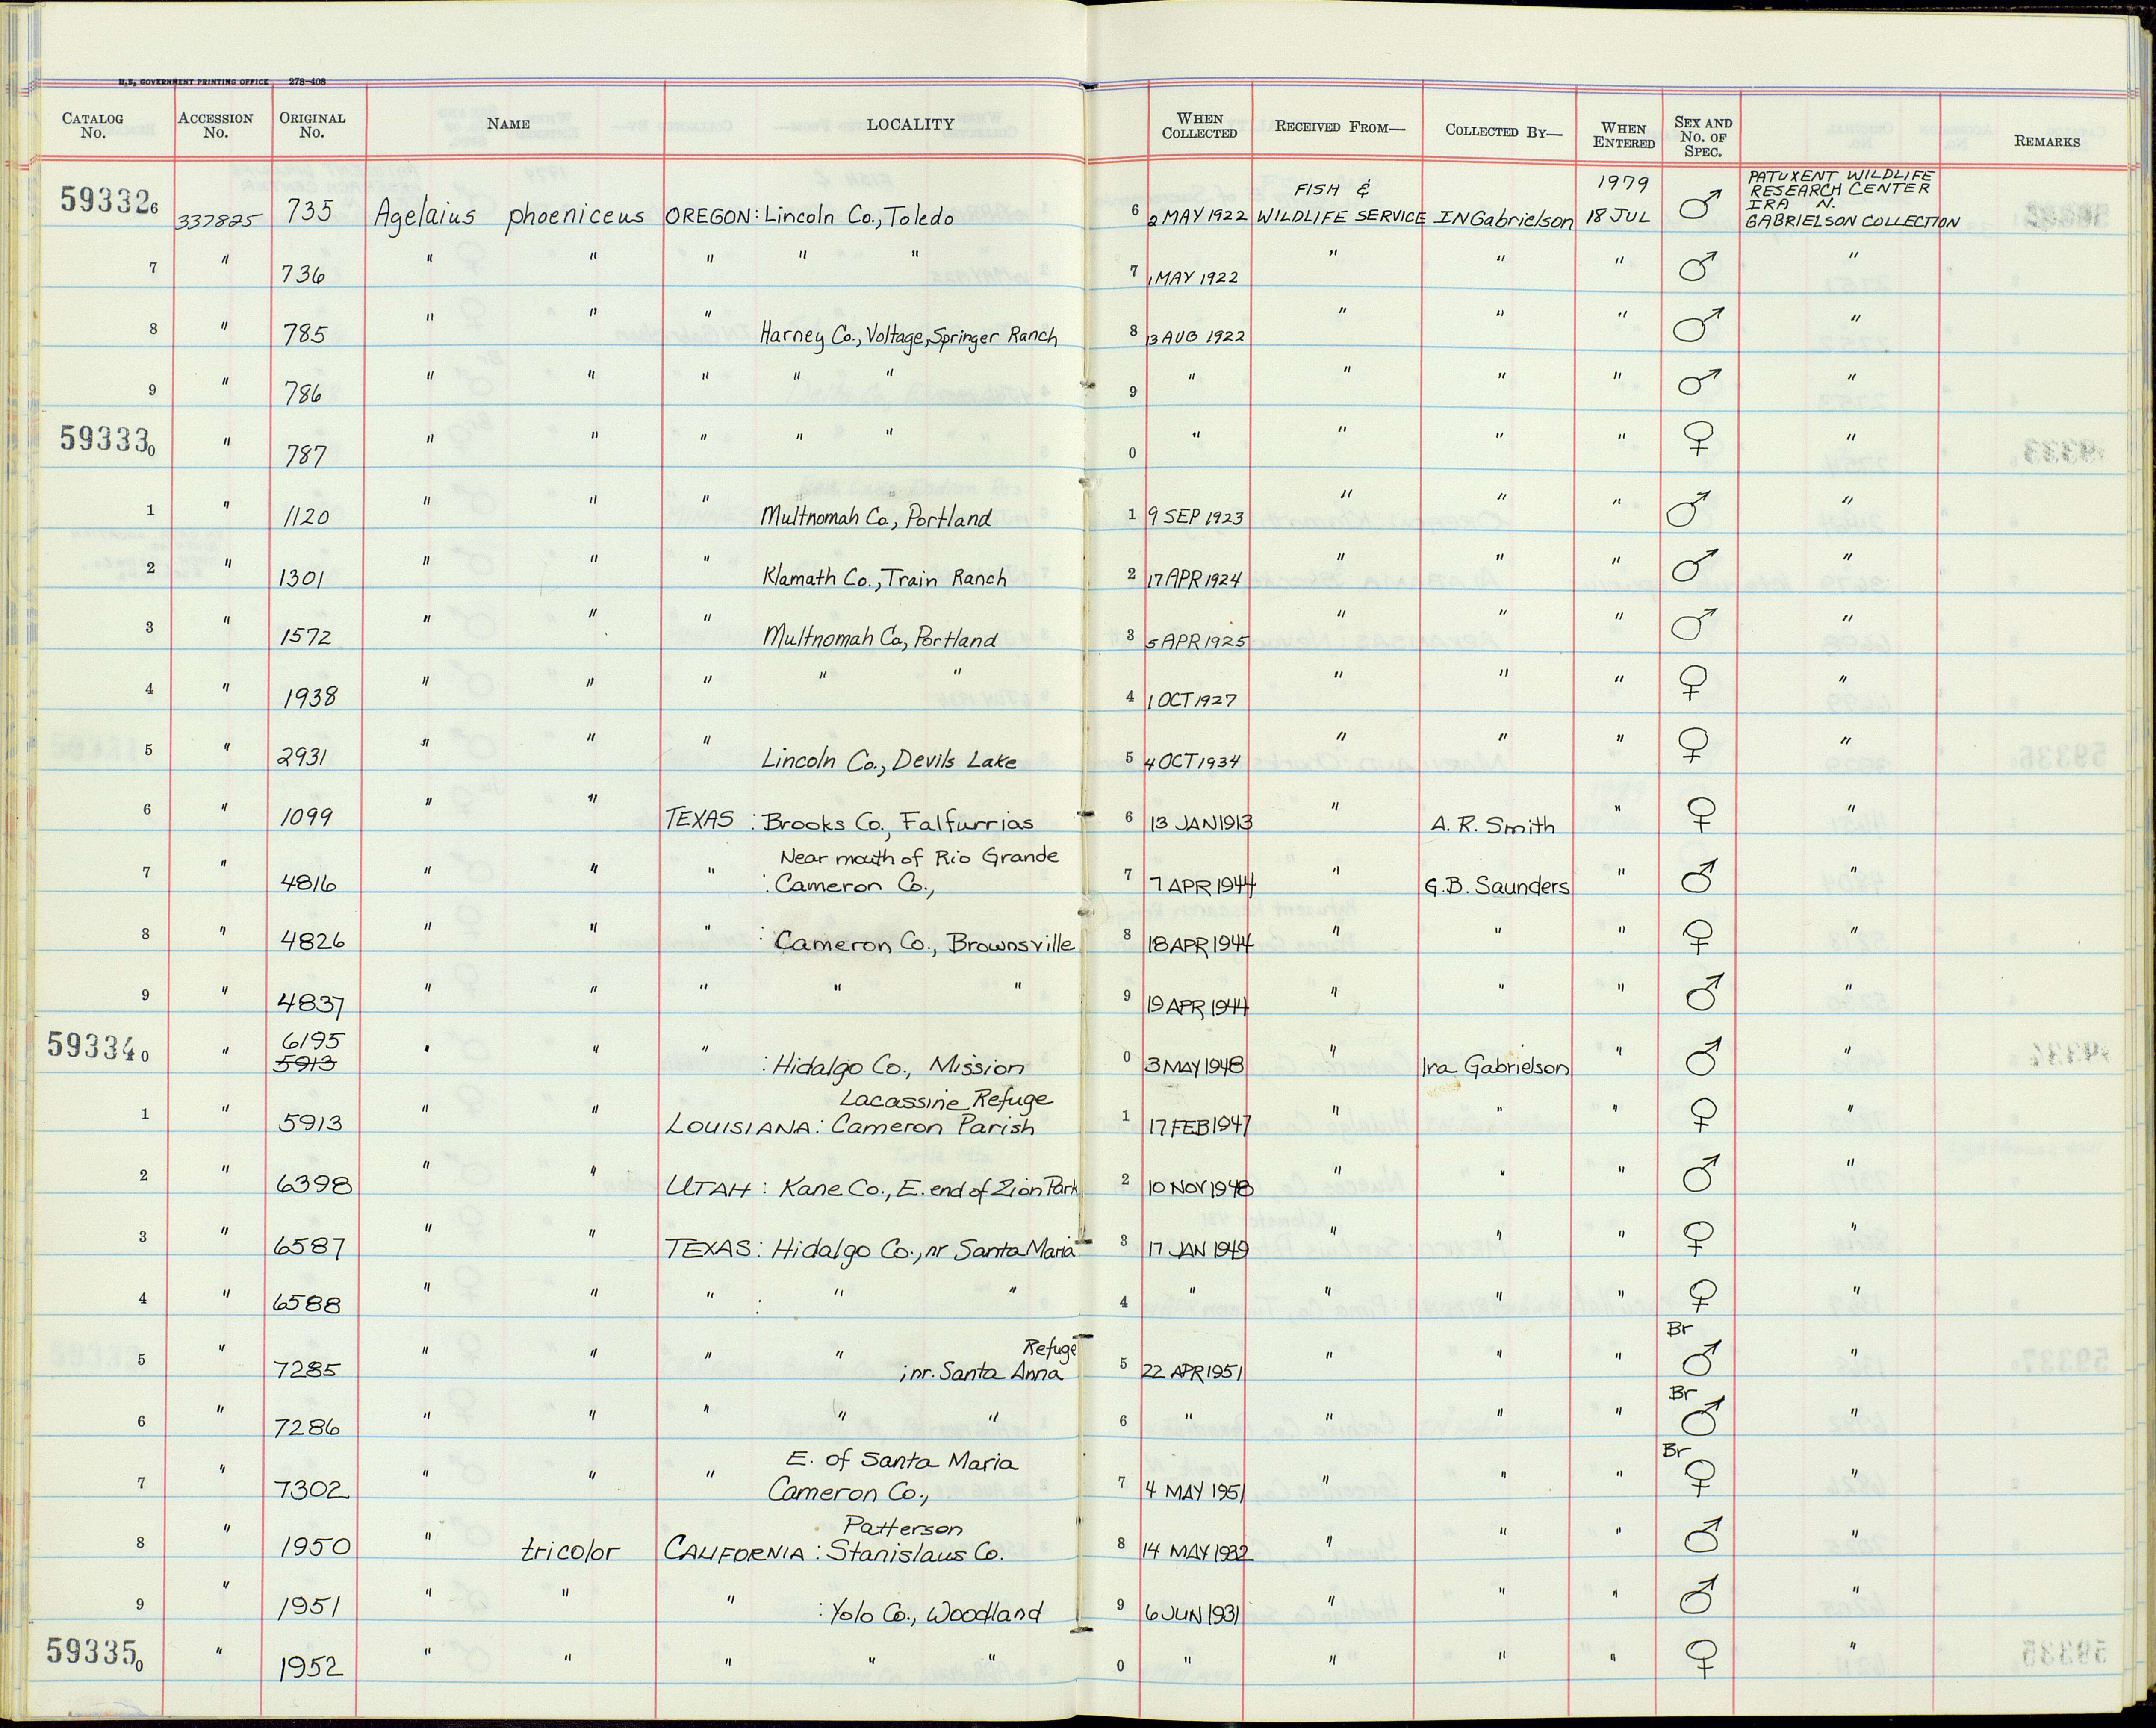 U.S. GOVERNMENT PRINTING OFFICE 278-408
CATALOG No. ACCESSION No. ORIGINAL No. NAME LOCALITY WHEN COLLECTED RECEIVED FROM— COLLECTED BY— WHEN ENTERED SEX AND No. OF SPEC. REMARKS
593326 337825 735 Agelaius phoeniceus OREGON: Lincoln Co., Toledo 6 2 MAY 1922 FISH & WILDLIFE SERVICE INGabrielson 1979 18 JUL ♂ PATUXENT WILDLIFE RESEARCH CENTER IRA N. GABRIELSON COLLECTION
7 " 736 " " " " " 7 1 MAY 1922 " " " ♂ "
8 " 785 " " " Harney Co., Voltage, Springer Ranch 8 13 AUG 1922 " " " ♂ "
9 " 786 " " " " " 9 " " " " ♂ "
593330 " 787 " " " " " 0 " " " " ♀ "
1 " 1120 " " " Multnomah Co., Portland 1 9 SEP 1923 " " " ♂ "
2 " 1301 " " " Klamath Co., Train Ranch 2 17 APR 1924 " " " ♂ "
3 " 1572 " " " Multnomah Co., Portland 3 5 APR 1925 " " " ♂ "
4 " 1938 " " " " " 4 1 OCT 1927 " " " ♀ "
5 " 2931 " " " Lincoln Co., Devils Lake 5 4 OCT 1934 " " " ♀ "
6 " 1099 " " TEXAS : Brooks Co., Falfurrias 6 13 JAN 1913 " A. R. Smith " ♀ "
7 " 4816 " " " : Near mouth of Rio Grande Cameron Co., 7 7 APR 1944 " G.B. Saunders " ♂ "
8 " 4826 " " " : Cameron Co., Brownsville 8 18 APR 1944 " " " ♀ "
9 " 4837 " " " " " 9 19 APR 1944 " " " ♂ "
593340 " 6195 5913 " " " : Hidalgo Co., Mission 0 3 MAY 1948 " Ira Gabrielson " ♂ "
1 " 5913 " " LOUISIANA: Lacassine Refuge Cameron Parish 1 17 FEB 1947 " " " ♀ "
2 " 6398 " " UTAH : Kane Co., E. end of Zion Park 2 10 NOV 1948 " " " ♂ "
3 " 6587 " " TEXAS: Hidalgo Co., nr Santa Maria 3 17 JAN 1949 " " " ♀ "
4 " 6588 " " " : " " 4 " " " " ♀ "
5 " 7285 " " " " ; nr. Santa Anna Refuge 5 22 APR 1951 " " " Br ♂ "
6 " 7286 " " " " " 6 " " " " Br ♂ "
7 " 7302 " " " E. of Santa Maria Cameron Co., 7 4 MAY 1951 " " " Br ♀ "
8 " 1950 " tricolor CALIFORNIA : Patterson Stanislaus Co. 8 14 MAY 1932 " " " ♂ "
9 " 1951 " " " : Yolo Co., Woodland 9 6 JUN 1931 " " " ♂ "
593350 " 1952 " " " " " 0 " " " " ♀ "